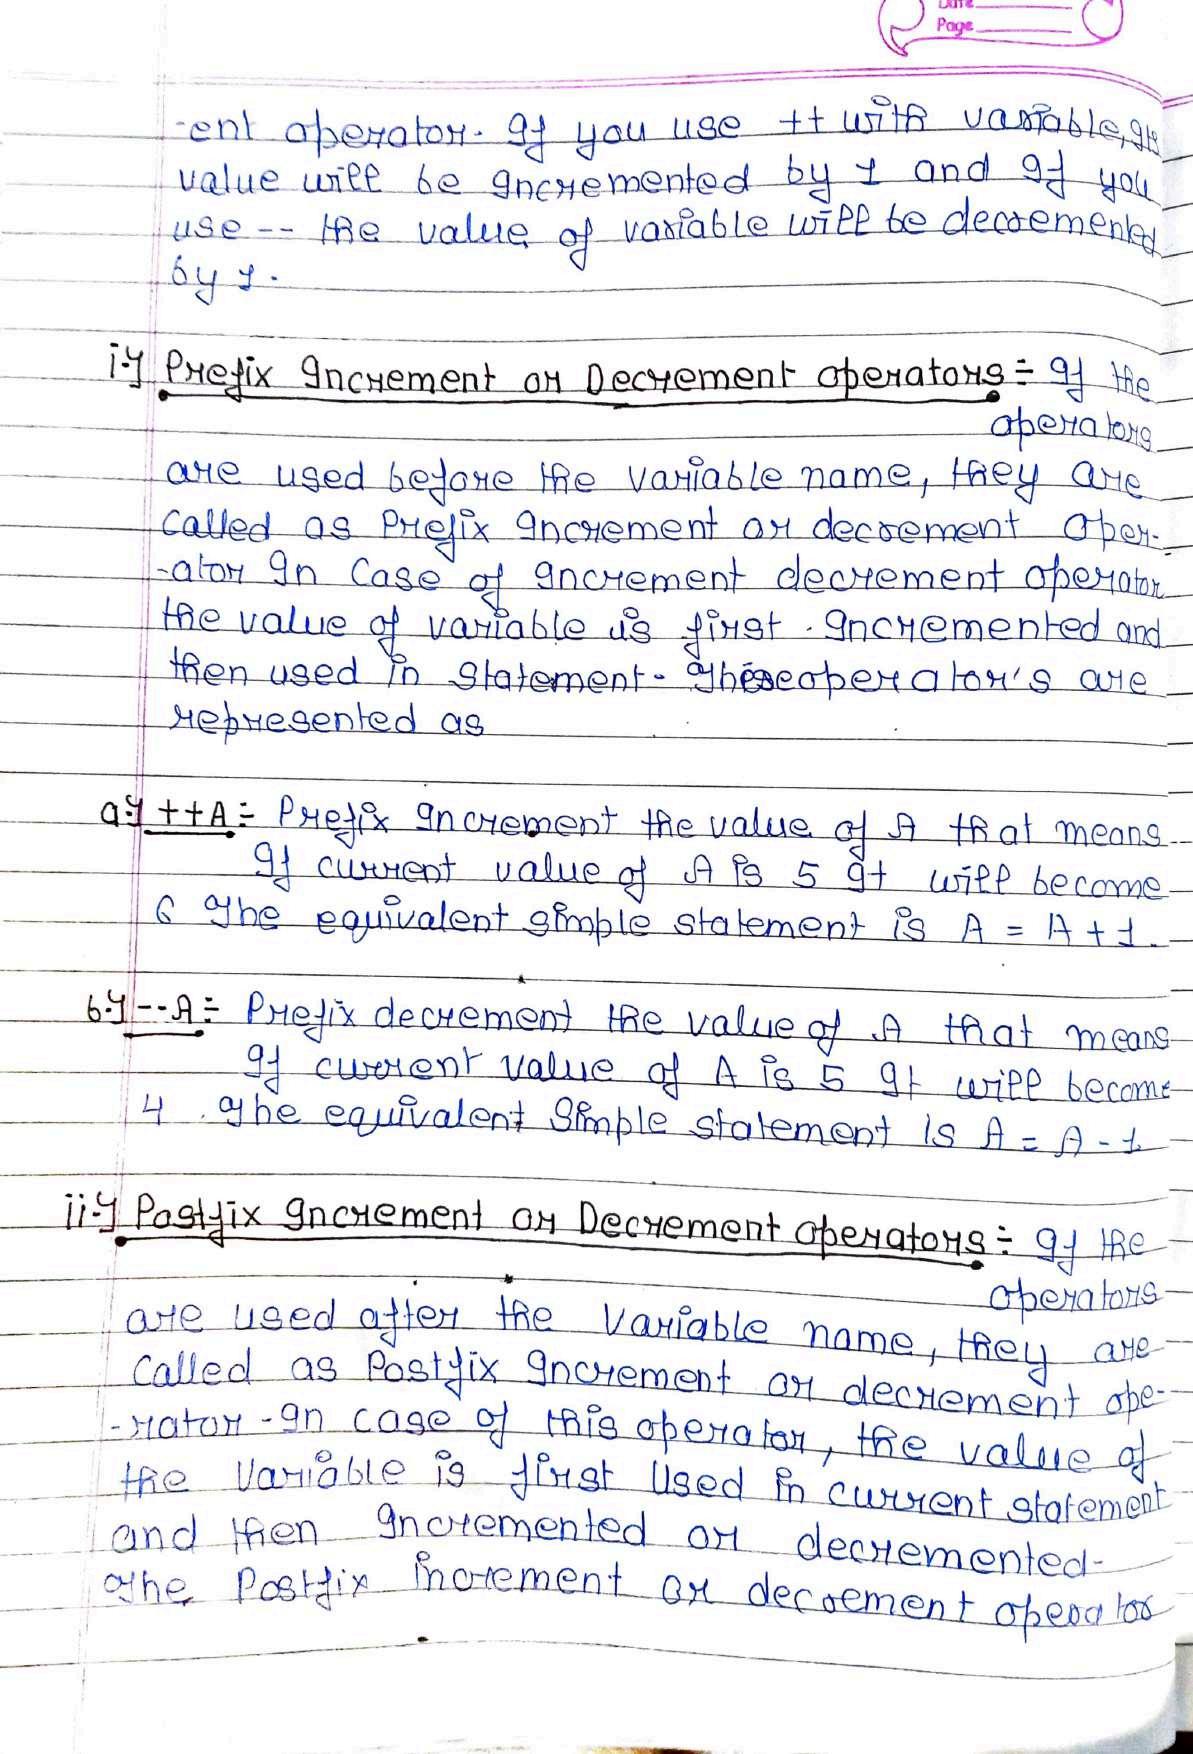 Date
Page
-ent operator. If you use ++ with variable, its
value will be incremented by 1 and if you
use -- the value of variable will be decremented
by 1.
i.) Prefix Increment or Decrement operators:- If the
operators
are used before the variable name, they are
called as Prefix increment or decrement oper-
-ator In case of increment decrement operator
the value of variable is first incremented and
then used in statement. These operator's are
represented as
a.) ++A:- Prefix increment the value of A that means
If current value of A is 5 It will become
6 The equivalent simple statement is A = A + 1.
b.) --A:- Prefix decrement the value of A that means
If current value of A is 5 It will become
4. The equivalent Simple statement is A = A - 1
ii.) Postfix Increment or Decrement operators:- If the
operators
are used after the variable name, they are
called as Postfix increment or decrement ope-
-rator. In case of this operator, the value of
the variable is first used in current statement
and then incremented or decremented.
The Postfix increment or decrement operator